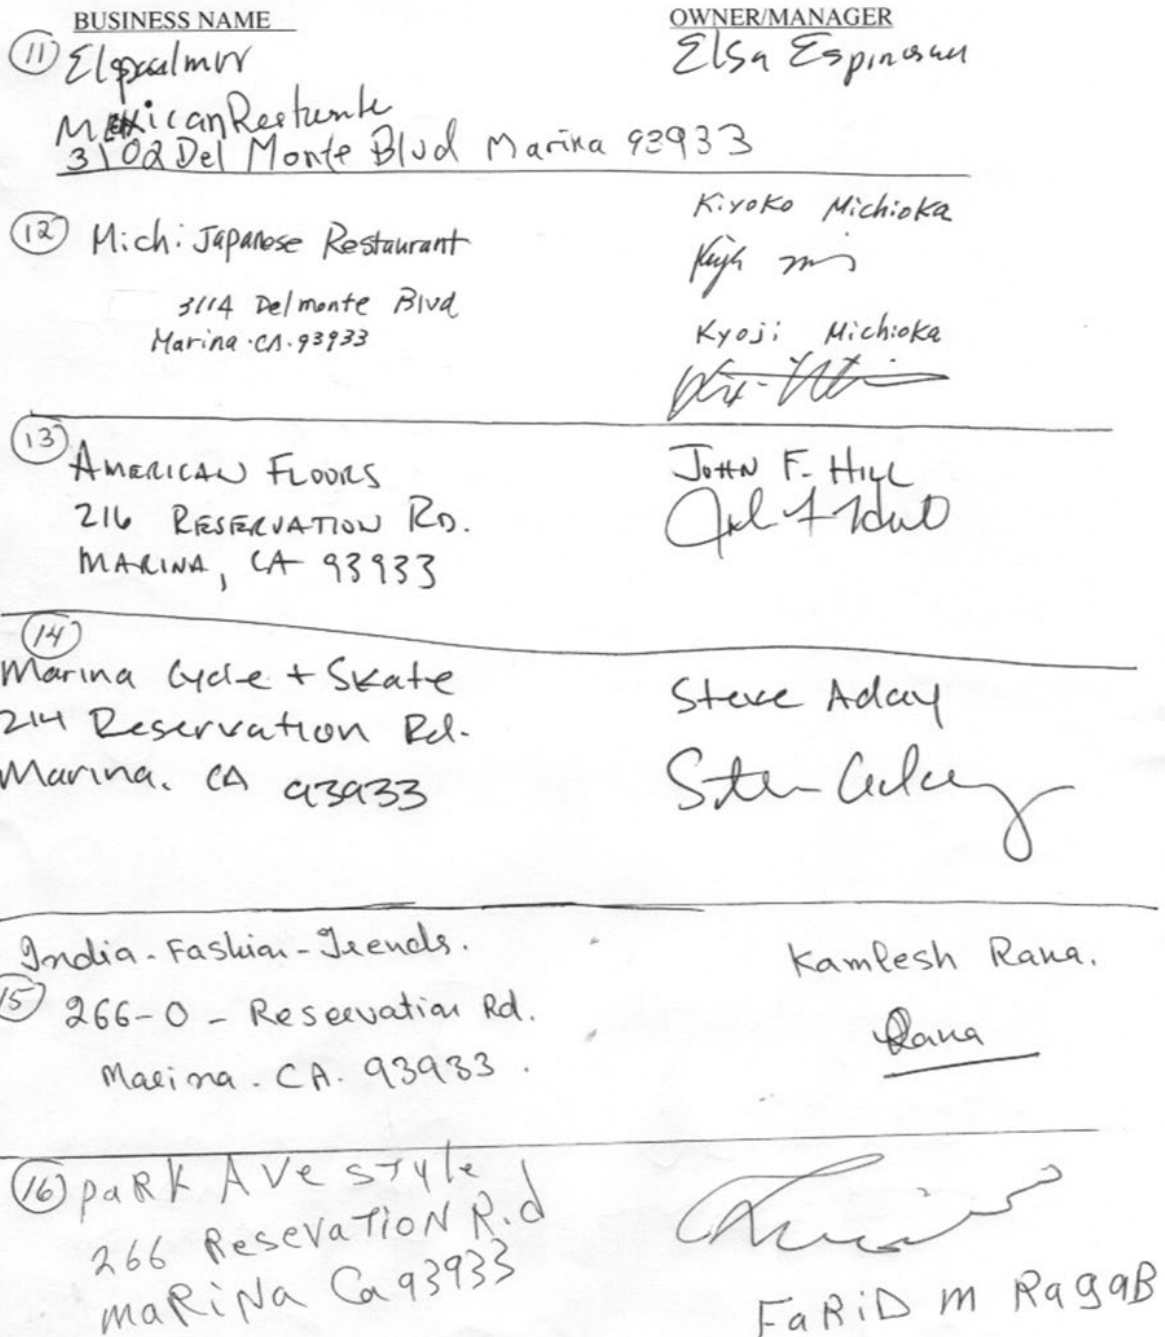 BUSINESS NAME
OWNER/MANAGER
11
Elsa
Mexican
3102 Del Monte Blvd Marina 93933
12 Michi Japanese Restaurant
3114 Del monte Blvd
Marina. CA. 93933
Kiyoko Michioka
Kyoji Michioka
13
AMERICAN FLOORS
216 RESERVATION RD.
MARINA, CA 93933
JOHN F. HILL
14
Marina Cycle + Skate
214 Reservation Rd.
Marina. CA 93933
Steve Aday
India - Fashion - Trends.
15 266-O - Reservation Rd.
Marina. CA. 93933.
Kamlesh Rana.
Rana
16 paRK AVe sTyle
266 ReseVaTioN R.d
maRiNa Ca 93933
FaRiD m RagaB